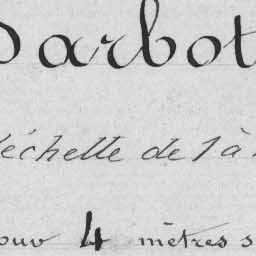 Darbot
l'échelle de 1 à
pour 4 mètres s